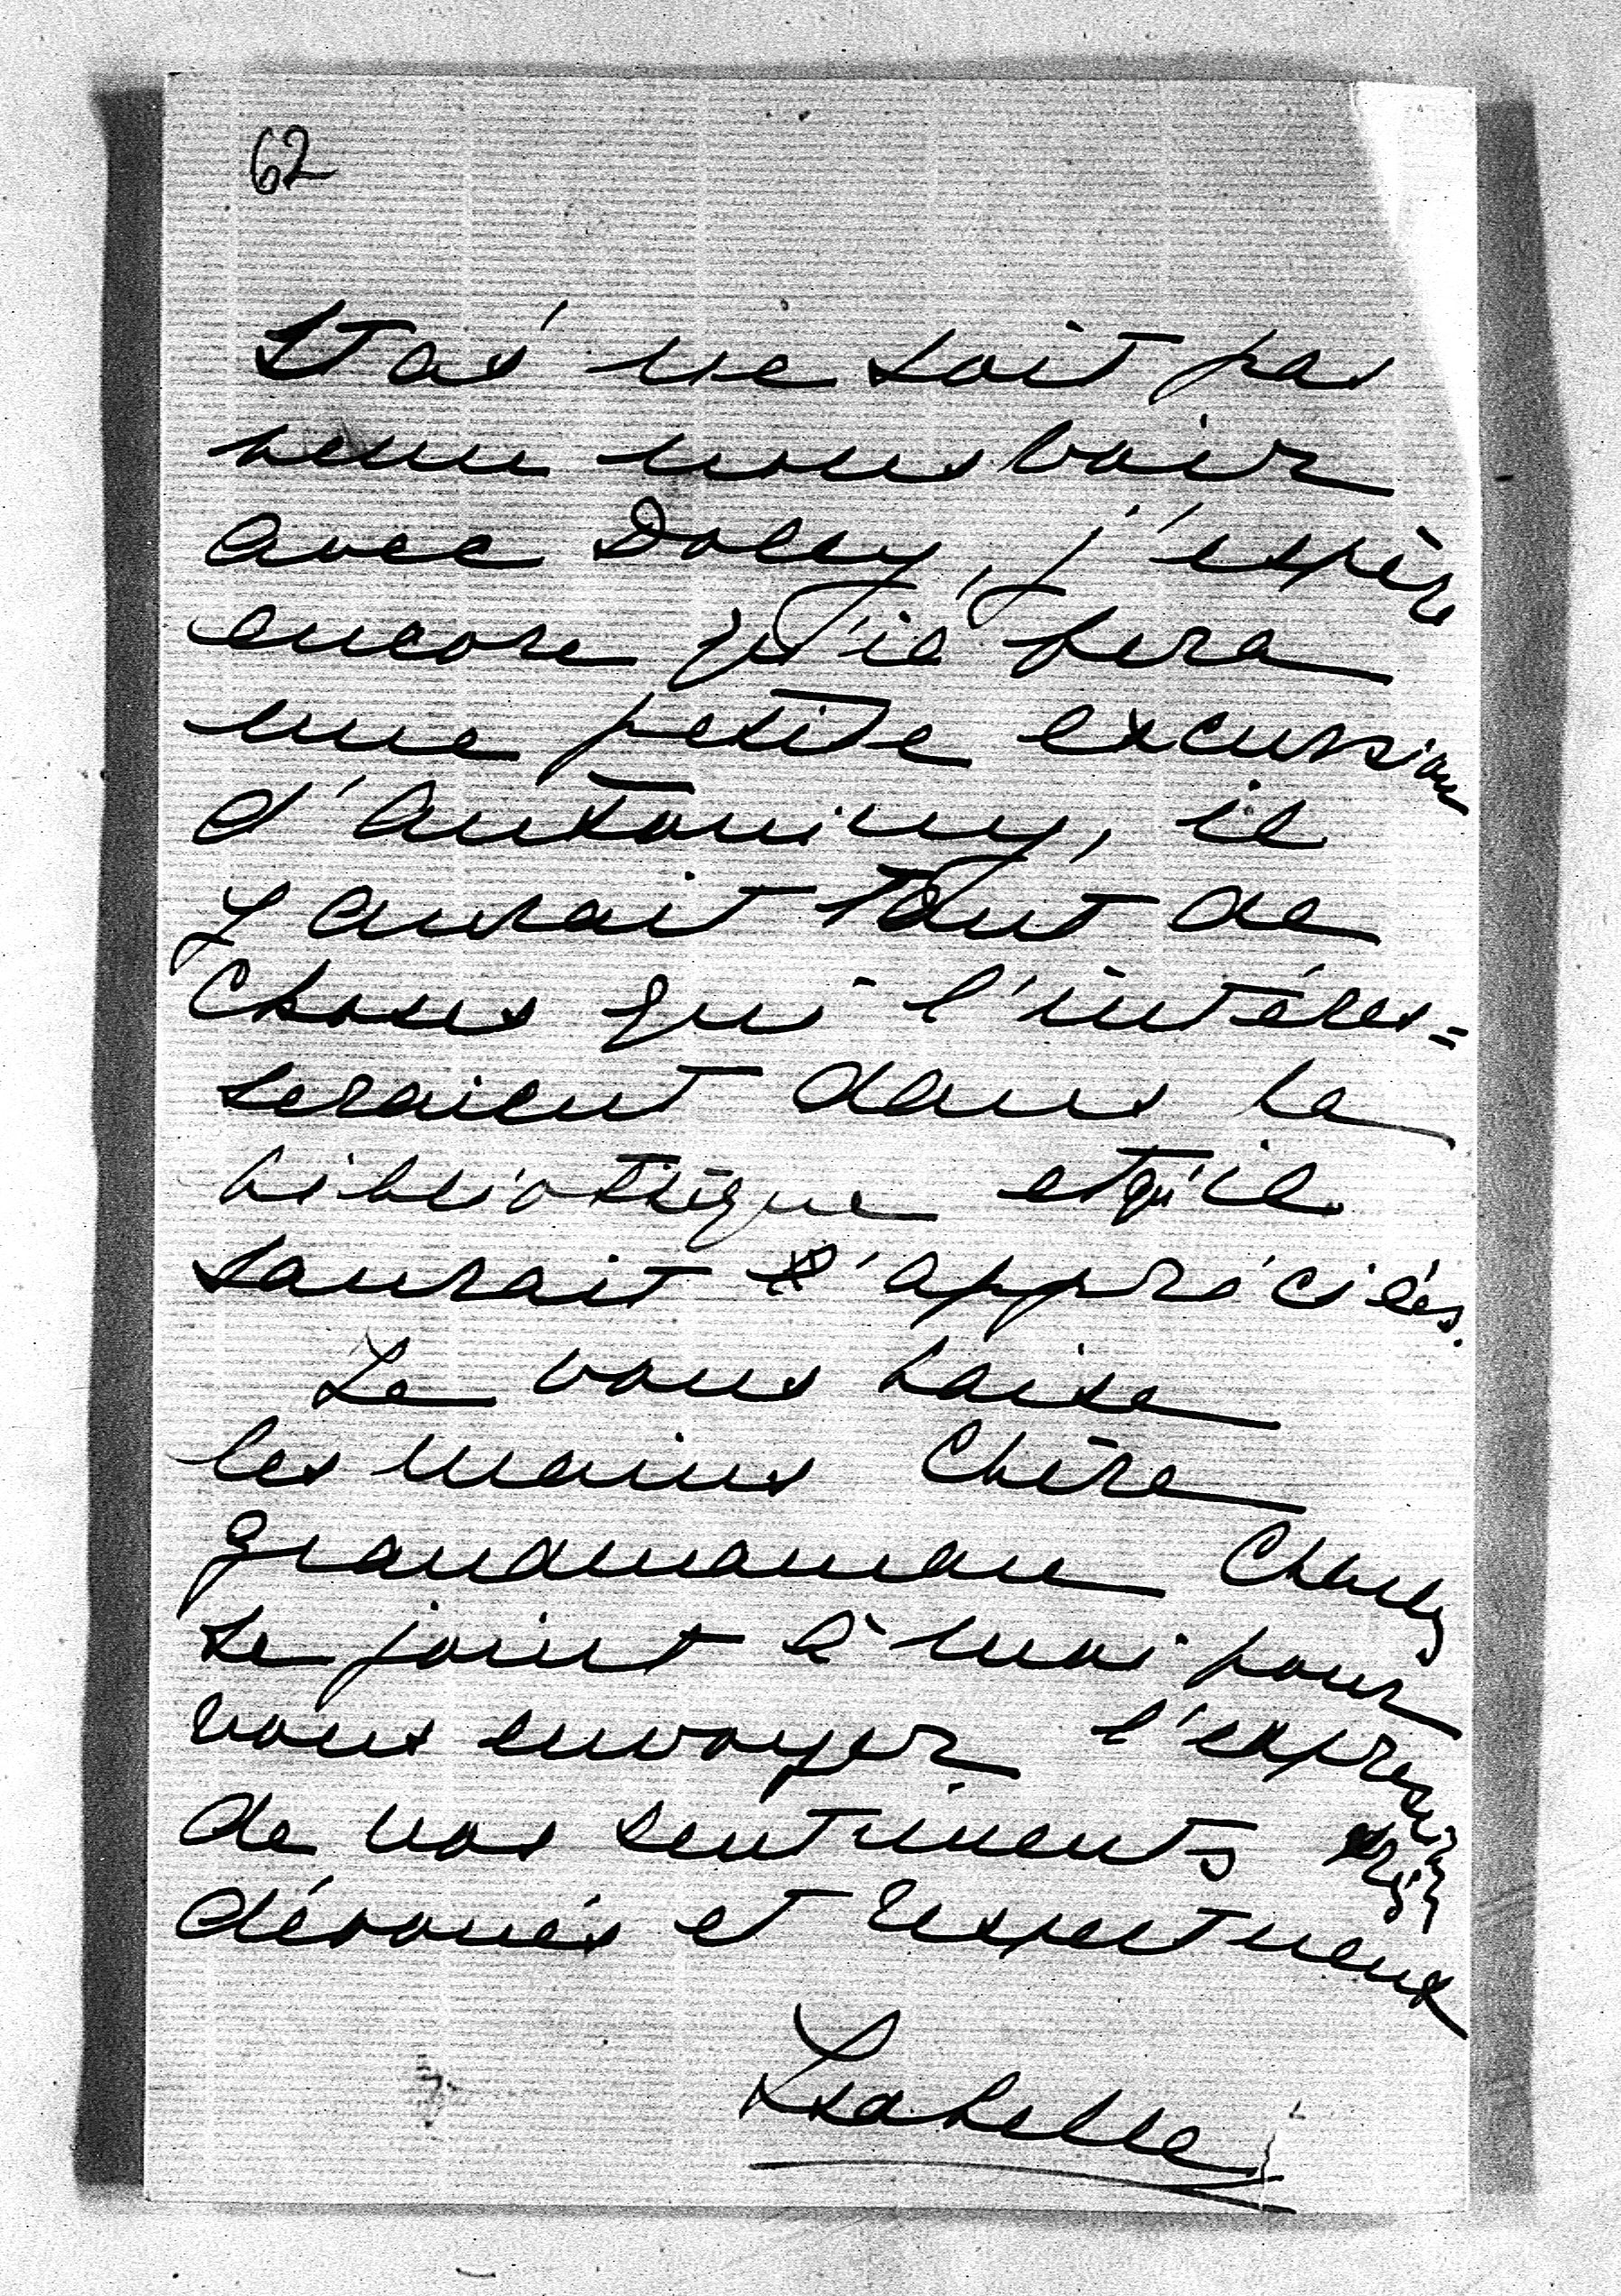 62
Staś ne soit pas
venu nous voir
avec Dolly, j'espère
encore qu'il fera
une petite excursion
d'Antoniny, il
y aurait tant de
choses qui l'intéres=
seraient dans la
bibliotèque et qu'il
saurait apprécier.
Je vous baise
les mains Chère
grandmaman Charly
se joint à moi pour
vous envoyer l'expression
de nos sentiments
dévoués et respectueux
Isabelle